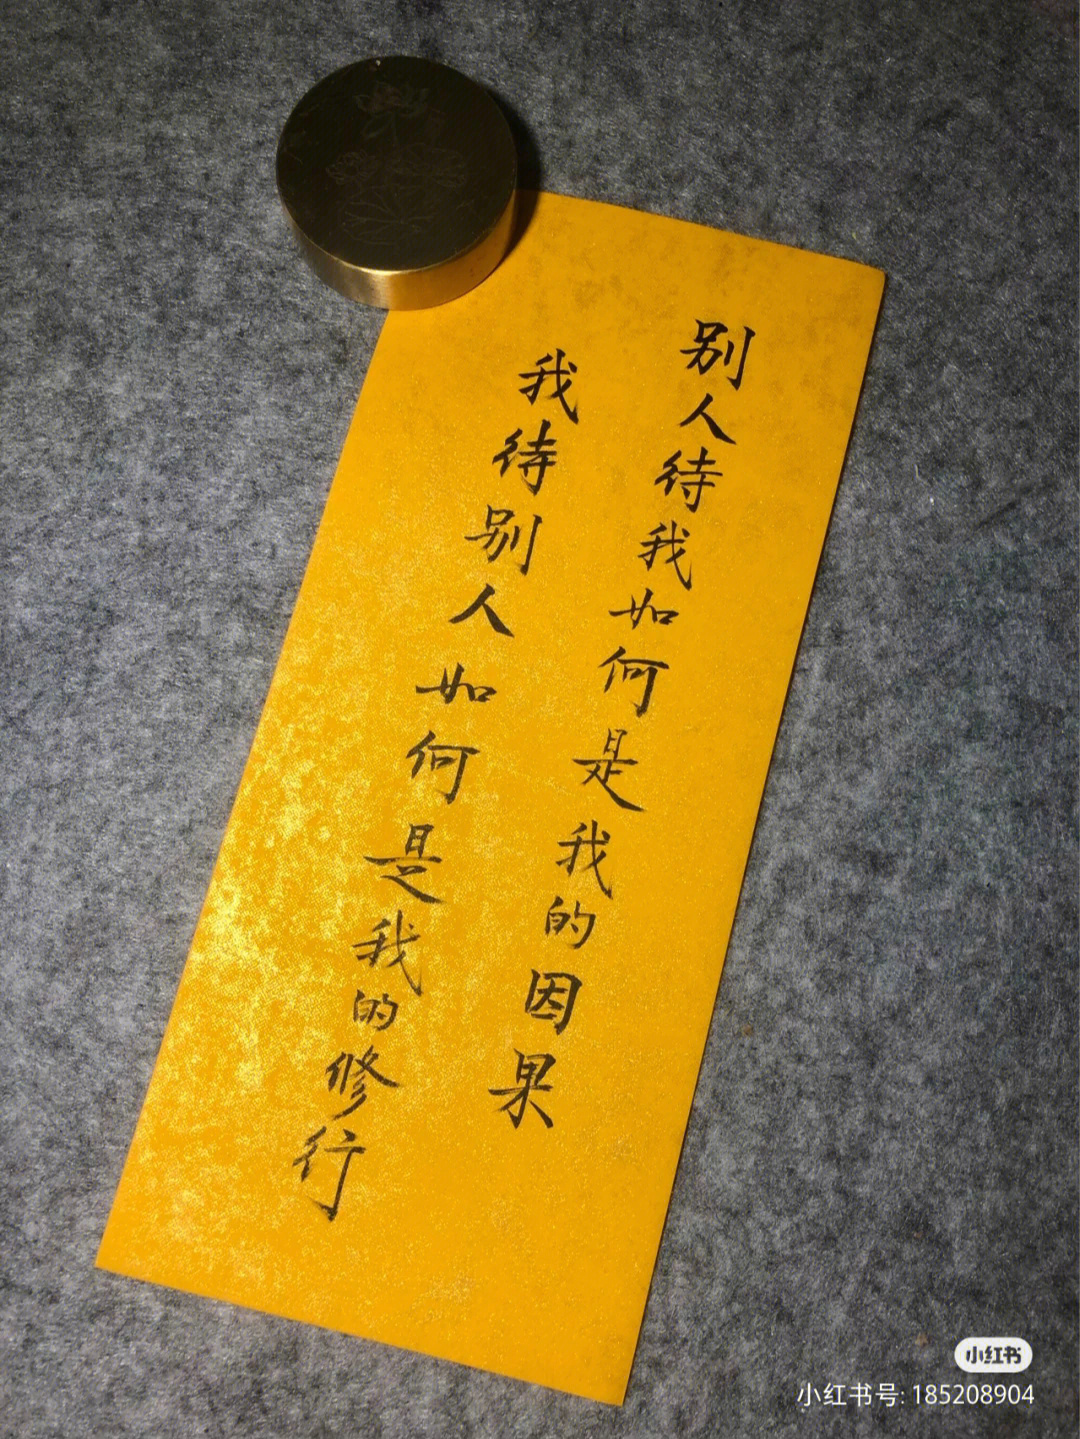 别人待我如何是我的因果
我待别人如何是我的修行
小红书
小红书号: 185208904